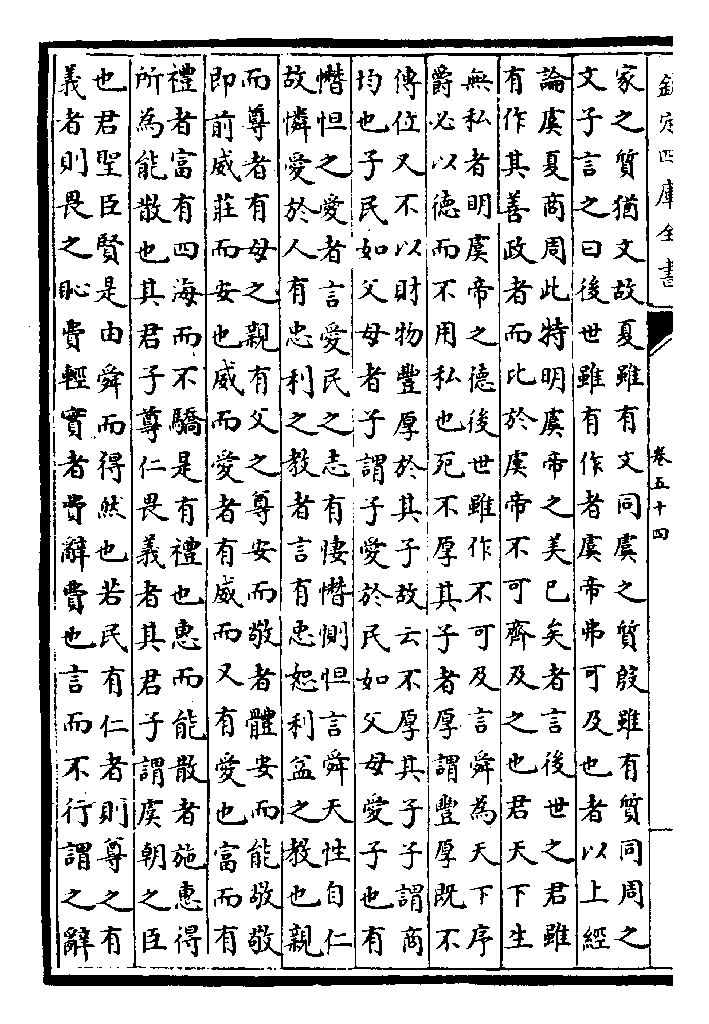 欽定四庫全書
卷五十四
家之質猶文故夏雖有文同虞之質殷雖有質同周之
文子言之曰後世雖有作者虞帝弗可及也者以上經
論虞夏商周此特明虞帝之美已矣者言後世之君雖
有作其善政者而比於虞帝不可齊及之也君天下生
無私者明虞帝之德後世雖作不可及言舜為天下序
爵必以德而不用私也死不厚其子者厚謂豐厚既不
傳位又不以財物豐厚於其子故云不厚其子子謂商
均也子民如父母者子謂子愛於民如父母愛子也有
憯怛之愛者言愛民之志有悽憯惻怛言舜天性自仁
故憐愛於人有忠利之教者言有忠恕利益之教也親
而尊者有母之親有父之尊安而敬者體安而能敬敬
即前威莊而安也威而愛者有威而又有愛也富而有
禮者富有四海而不驕是有禮也惠而能散者施惠得
所為能散也其君子尊仁畏義者其君子謂虞朝之臣
也君聖臣賢是由舜而得然也若民有仁者則尊之有
義者則畏之恥費輕實者費辭費也言而不行謂之辭